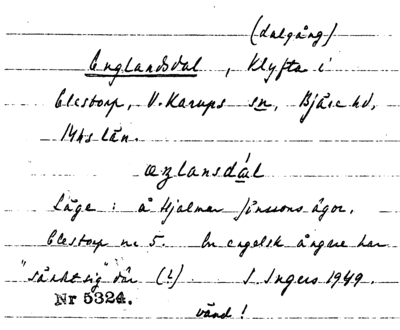 (dalgång)
Englandsdal, Klyfta i
Elestorp, V. Karups sn, Bjäre hd,
Mhs län.
æŋlansdál
Läge: å Hjalmar Jönssons ägor,
Elestorp nr 5. En engelsk ångare har
"sänkt sig" där (!) I. Ingers 1949.
Nr 5324.
vänd!